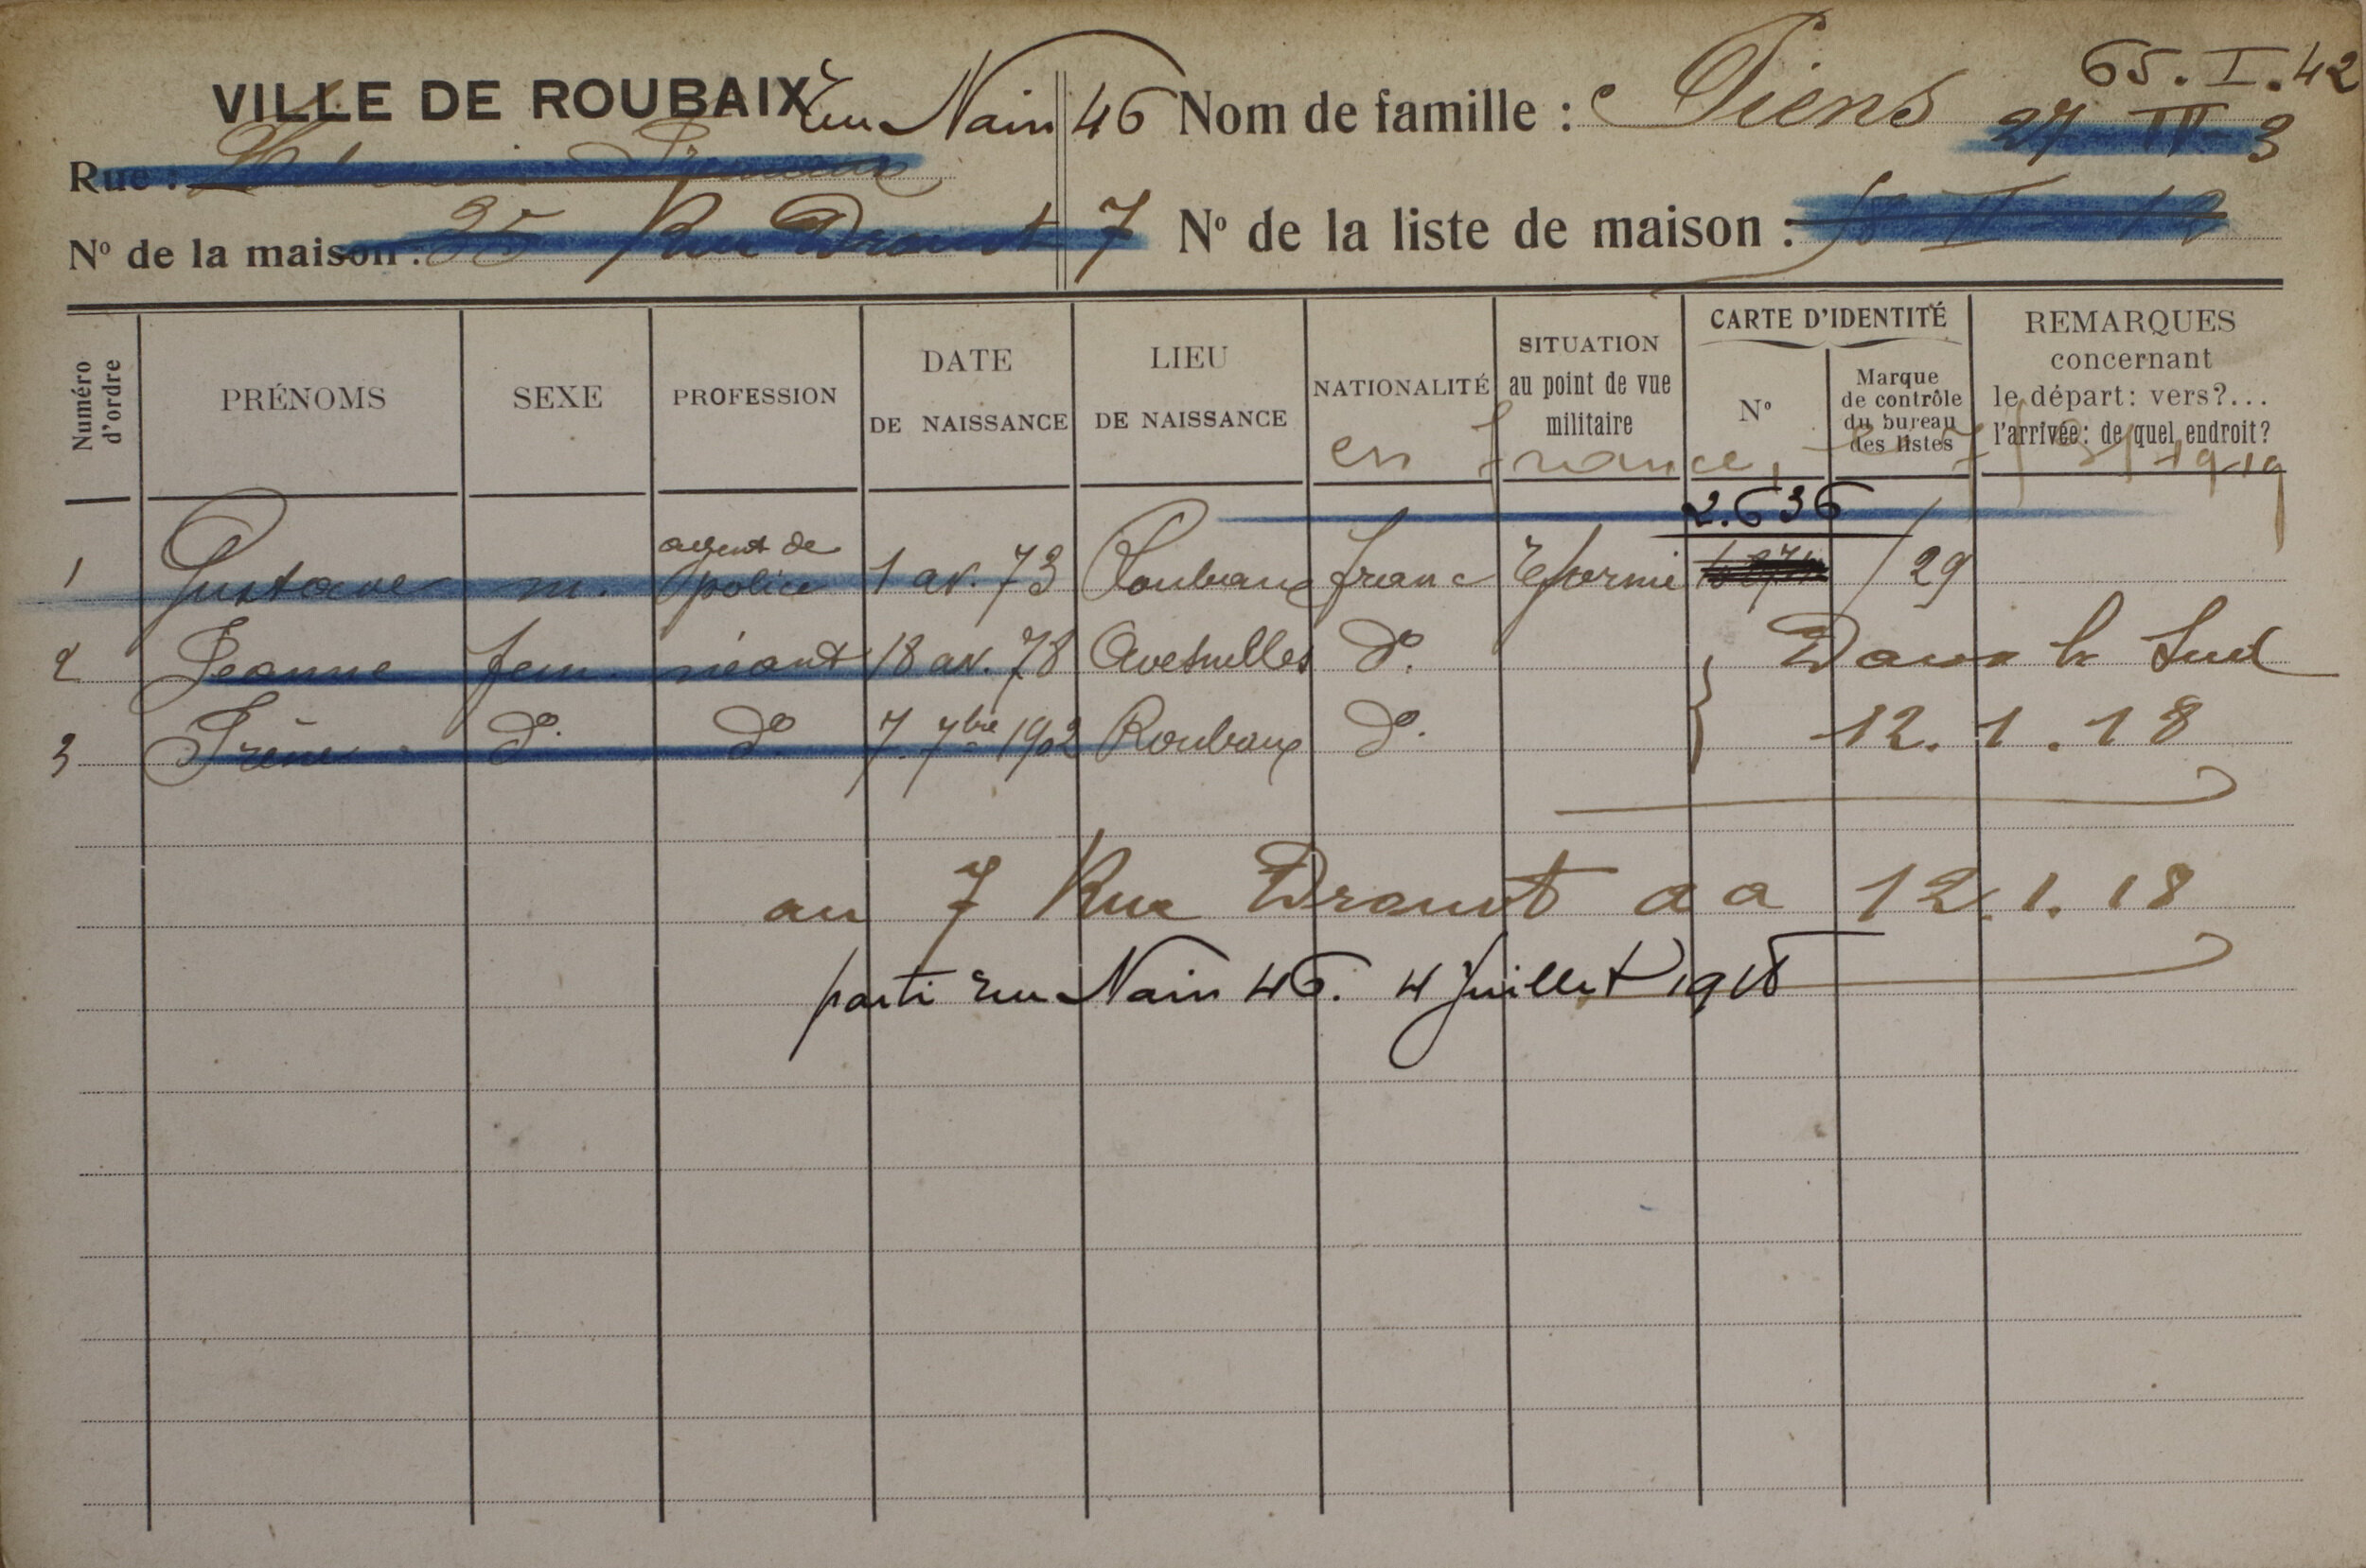 VILLE DE ROUBAIX rue Nain 46 Nom de famille : Piens 65. I. 42
27 IV 3
Rue :
N° de la maison : 35 Rue Drouot 7 N° de la liste de maison : 58 II 12
Numéro d'ordre
PRÉNOMS
SEXE
PROFESSION
DATE
DE NAISSANCE
LIEU
DE NAISSANCE
NATIONALITÉ
SITUATION
au point de vue
militaire
CARTE D'IDENTITÉ
N°
Marque
de contrôle
du bureau
des listes
REMARQUES
concernant
le départ : vers ?...
l'arrivée : de quel endroit ?
en France, 1919
2.636
1 Gustave m. agent de police 1 av. 73 Roubaix franc Réformé / 29
2 Jeanne fem. néant 18 av. 78 Avesnelles d°. } Dans le Sud
3 Irène d°. d°. 7 7bre 1902 Roubaix d°. 12.1.18
au 7 Rue Drouot a a 12.1.18
parti rue Nain 46. 4 Juillet 1918